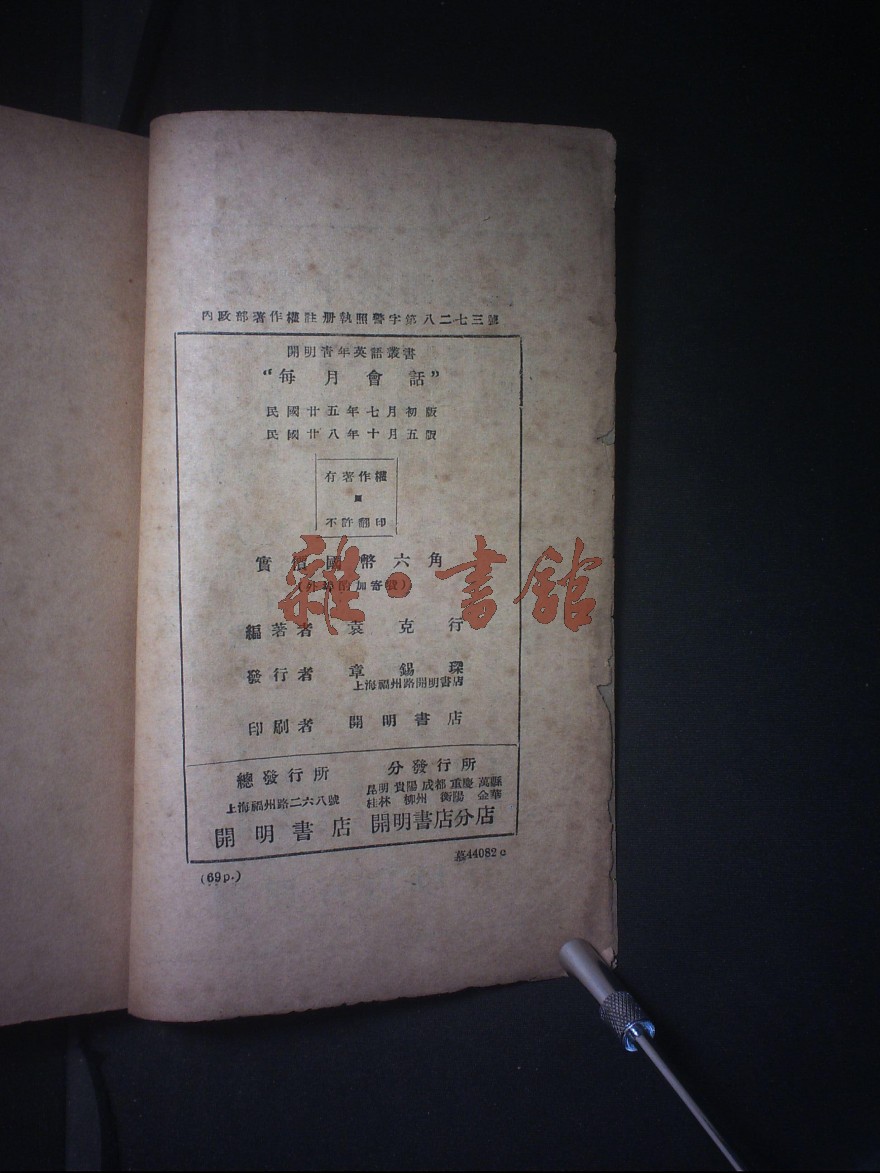 內政部著作權註册執照警字第八二七三號
開明青年英語叢書
“每月會話”
民國廿五年七月初版
民國廿八年十月五版
有著作權
不許翻印
實價國幣六角
(外埠酌加寄費)
雜·書館
編著者 袁克行
發行者 章錫琛
上海福州路開明書店
印刷者 開明書店
總發行所
上海福州路二六八號
開明書店
分發行所
昆明 貴陽 成都 重慶 萬縣
桂林 柳州 衡陽 金華
開明書店分店
(69p.)
44082c